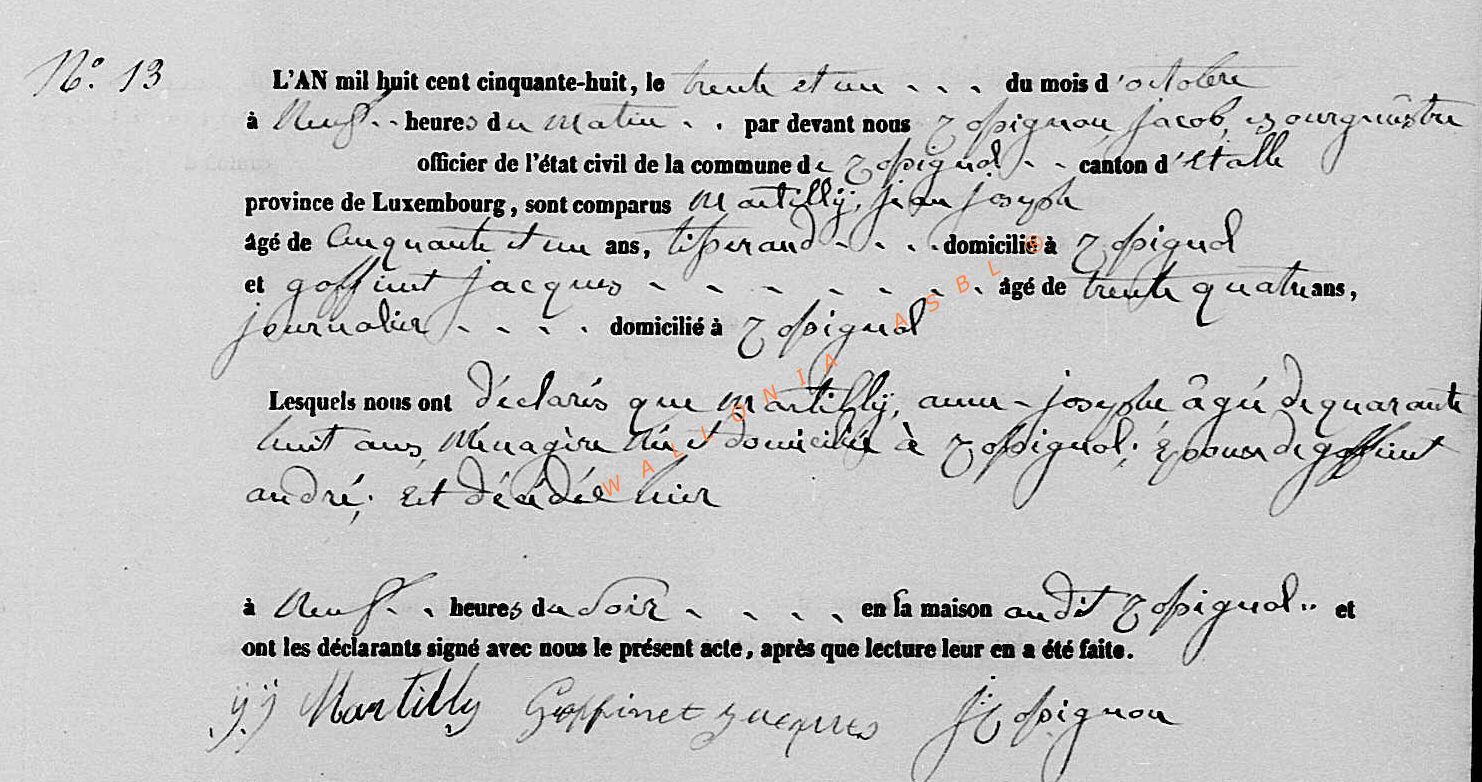 N.º 13
L'AN mil huit cent cinquante-huit, le trente et un - - - du mois d'octobre
à Neuf - - heures du matin - - par devant nous Rossignon, jacob, Bourgumêstre
officier de l'état civil de la commune de Rossignol - - canton d'Etalle
province de Luxembourg, sont comparus Martilly, jean joseph
âgé de Cinquante et un ans, tisserand - - - - domicilié à Rossignol
et goffinet jacques - - - - - - - - âgé de trente quatre ans,
journalier - - - - domicilié à Rossignol
Lesquels nous ont déclarés que Martilly, anne - josephe âgé de quarante
huit ans, Ménagère née et domiciliée à Rossignol; Epouse de goffinet
andré; Est décédée hier
à Neuf - - heures du Soir - - - - en la maison audit Rossignol " et
ont les déclarants signé avec nous le présent acte, après que lecture leur en a été faite.
jj Martilly Goffinet jacques J Rossignon
WALLONIA ASBL ©